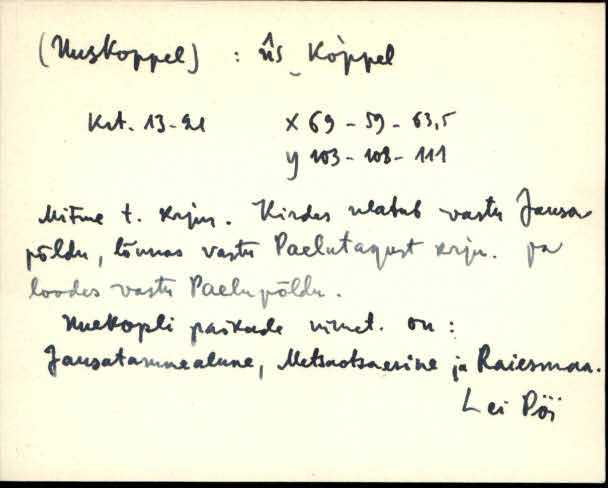 (Uuskoppel) : ûs_Kòppel
Krt. 13-21 x 69 - 59 - 63,5
y 103 - 108 - 111
Mitme t. krju. Kirdes ulatub vastu Jausa
põldu, lõunas vastu Paelutagust krju. ja
loodes vastu Paelupõldu.
Uuekopli paikade nimet. on:
Jausatammealune, Metsaotsaesine ja Raiesmaa.
Lei Pöi